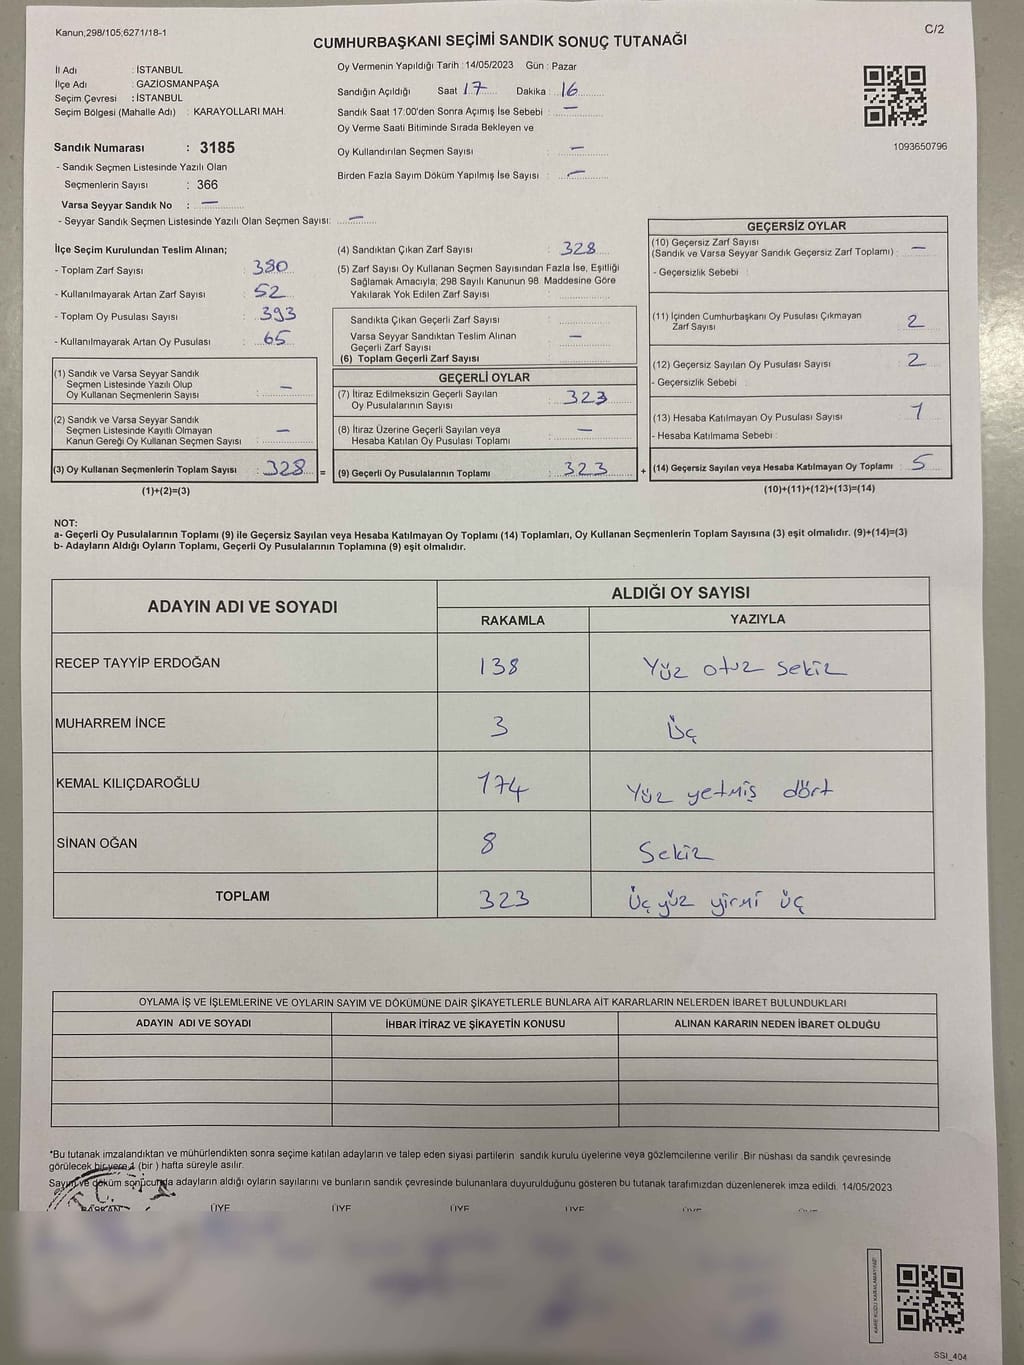 Kanun;298/105;6271/18-1
C/2
CUMHURBAŞKANI SEÇİMİ SANDIK SONUÇ TUTANAĞI
İl Adı : İSTANBUL
İlçe Adı : GAZİOSMANPAŞA
Seçim Çevresi : İSTANBUL
Seçim Bölgesi (Mahalle Adı) : KARAYOLLARI MAH.
Oy Vermenin Yapıldığı Tarih :14/05/2023 Gün : Pazar
Sandığın Açıldığı Saat 17 Dakika : 16
Sandık Saat 17:00'den Sonra Açımış İse Sebebi : —
Oy Verme Saati Bitiminde Sırada Bekleyen ve
Oy Kullandırılan Seçmen Sayısı : —
Birden Fazla Sayım Döküm Yapılmış İse Sayısı : —
1093650796
Sandık Numarası : 3185
- Sandık Seçmen Listesinde Yazılı Olan
Seçmenlerin Sayısı : 366
Varsa Seyyar Sandık No : —
- Seyyar Sandık Seçmen Listesinde Yazılı Olan Seçmen Sayısı: —
İlçe Seçim Kurulundan Teslim Alınan;
- Toplam Zarf Sayısı : 380
- Kullanılmayarak Artan Zarf Sayısı : 52
- Toplam Oy Pusulası Sayısı : 393
- Kullanılmayarak Artan Oy Pusulası : 65
(1) Sandık ve Varsa Seyyar Sandık
Seçmen Listesinde Yazılı Olup
Oy Kullanan Seçmenlerin Sayısı : —
(2) Sandık ve Varsa Seyyar Sandık
Seçmen Listesinde Kayıtlı Olmayan
Kanun Gereği Oy Kullanan Seçmen Sayısı : —
(3) Oy Kullanan Seçmenlerin Toplam Sayısı : 328 =
(1)+(2)=(3)
(4) Sandıktan Çıkan Zarf Sayısı : 328
(5) Zarf Sayısı Oy Kullanan Seçmen Sayısından Fazla İse, Eşitliği
Sağlamak Amacıyla; 298 Sayılı Kanunun 98. Maddesine Göre
Yakılarak Yok Edilen Zarf Sayısı :
Sandıkta Çıkan Geçerli Zarf Sayısı :
Varsa Seyyar Sandıktan Teslim Alınan
Geçerli Zarf Sayısı : —
(6) Toplam Geçerli Zarf Sayısı :
GEÇERLİ OYLAR
(7) İtiraz Edilmeksizin Geçerli Sayılan
Oy Pusulalarının Sayısı : 323
(8) İtiraz Üzerine Geçerli Sayılan veya
Hesaba Katılan Oy Pusulası Toplamı : —
(9) Geçerli Oy Pusulalarının Toplamı : 323 +
GEÇERSİZ OYLAR
(10) Geçersiz Zarf Sayısı
(Sandık ve Varsa Seyyar Sandık Geçersiz Zarf Toplamı) : —
- Geçersizlik Sebebi :
(11) İçinden Cumhurbaşkanı Oy Pusulası Çıkmayan
Zarf Sayısı : 2
(12) Geçersiz Sayılan Oy Pusulası Sayısı : 2
- Geçersizlik Sebebi :
(13) Hesaba Katılmayan Oy Pusulası Sayısı : 1
- Hesaba Katılmama Sebebi :
(14) Geçersiz Sayılan veya Hesaba Katılmayan Oy Toplamı : 5
(10)+(11)+(12)+(13)=(14)
NOT:
a- Geçerli Oy Pusulalarının Toplamı (9) ile Geçersiz Sayılan veya Hesaba Katılmayan Oy Toplamı (14) Toplamları, Oy Kullanan Seçmenlerin Toplam Sayısına (3) eşit olmalıdır. (9)+(14)=(3)
b- Adayların Aldığı Oyların Toplamı, Geçerli Oy Pusulalarının Toplamına (9) eşit olmalıdır.
ADAYIN ADI VE SOYADI
ALDIĞI OY SAYISI
RAKAMLA YAZIYLA
RECEP TAYYİP ERDOĞAN 138 Yüz otuz sekiz
MUHARREM İNCE 3 Üç
KEMAL KILIÇDAROĞLU 174 Yüz yetmiş dört
SİNAN OĞAN 8 Sekiz
TOPLAM 323 Üç yüz yirmi üç
OYLAMA İŞ VE İŞLEMLERİNE VE OYLARIN SAYIM VE DÖKÜMÜNE DAİR ŞİKAYETLERLE BUNLARA AİT KARARLARIN NELERDEN İBARET BULUNDUKLARI
ADAYIN ADI VE SOYADI İHBAR İTİRAZ VE ŞİKAYETİN KONUSU ALINAN KARARIN NEDEN İBARET OLDUĞU
*Bu tutanak imzalandıktan ve mühürlendikten sonra seçime katılan adayların ve talep eden siyasi partilerin sandık kurulu üyelerine veya gözlemcilerine verilir .Bir nüshası da sandık çevresinde
görülecek bir yere 1 (bir ) hafta süreyle asılır.
Sayım ve döküm sonucunda adayların aldığı oyların sayılarını ve bunların sandık çevresinde bulunanlara duyurulduğunu gösteren bu tutanak tarafımızdan düzenlenerek imza edildi. 14/05/2023
T.C.
BAŞKAN ÜYE ÜYE ÜYE ÜYE ÜYE ÜYE
KARE KODU KARALAMAYINIZ!
SSI_404